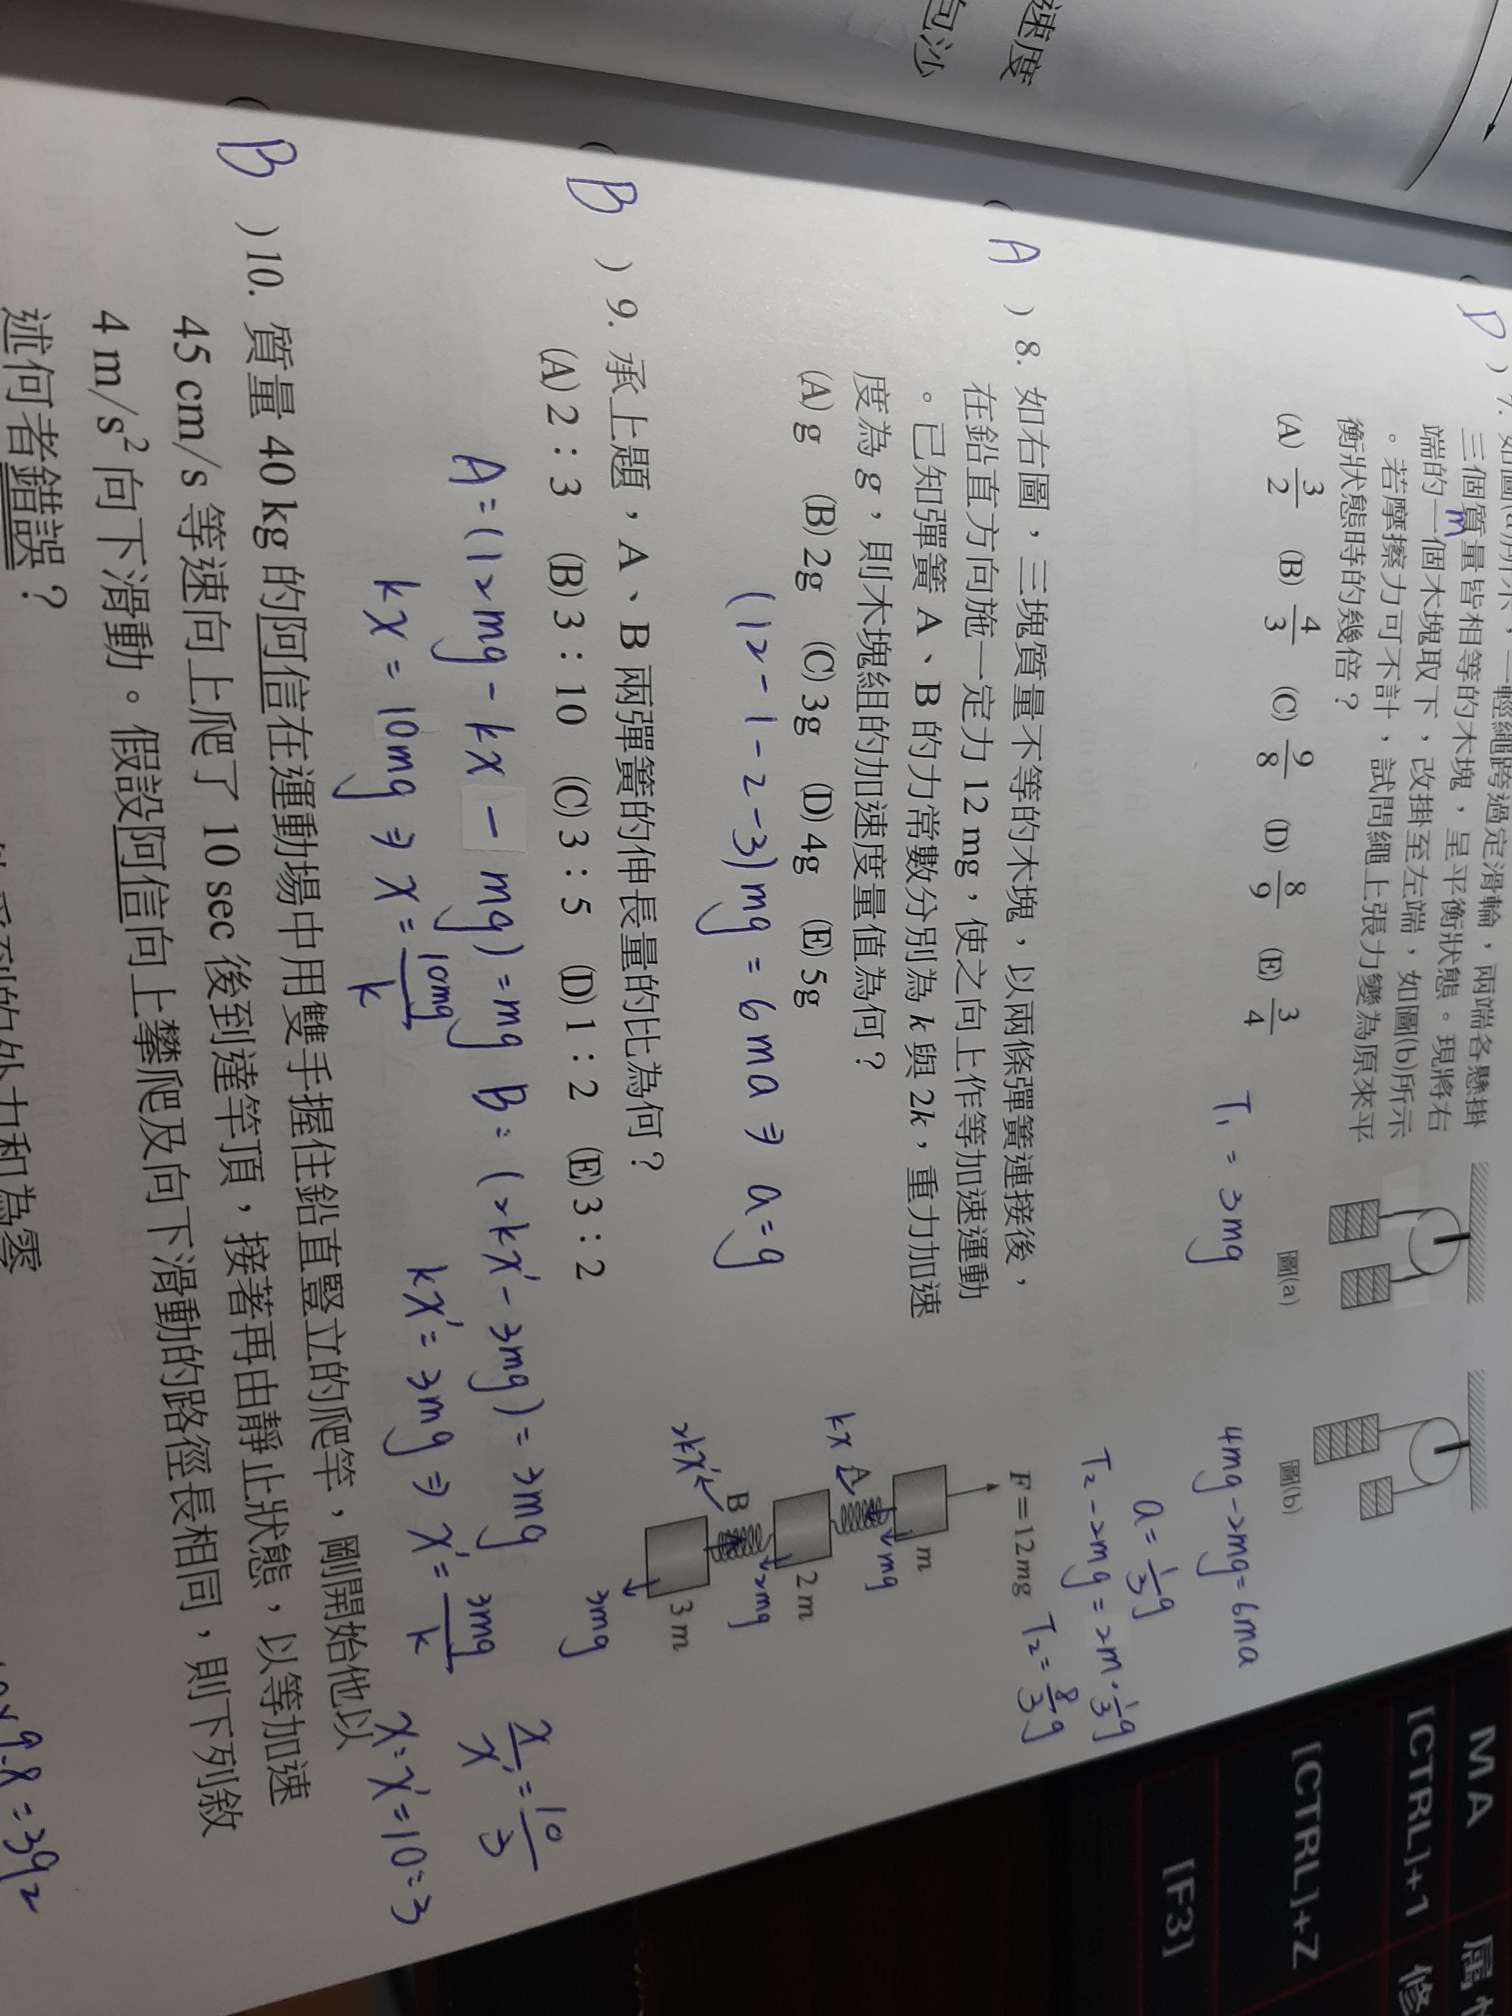 速度
包沙
D ) 7.
三個質量皆相等的木塊，呈平衡狀態。現將右
m
端的一個木塊取下，改掛至左端，如圖(b)所示
。若摩擦力可不計，試問繩上張力變為原來平
衡狀態時的幾倍？
(A) 3/2 (B) 4/3 (C) 9/8 (D) 8/9 (E) 3/4
圖(a)
圖(b)
T₁ = 3mg
4mg-2mg=6ma
a=1/3g
T₂-2mg=2m·1/3g
T₂=8/3g
( A ) 8. 如右圖，三塊質量不等的木塊，以兩條彈簧連接後，
在鉛直方向施一定力 12 mg，使之向上作等加速運動
。已知彈簧 A、B 的力常數分別為 k 與 2k，重力加速
度為 g，則木塊組的加速度量值為何？
(A) g (B) 2g (C) 3g (D) 4g (E) 5g
(12-1-2-3)mg = 6ma ⇒ a=g
F＝12mg
m
mg
kx A
2m
2mg
B
2kx'
3m
3mg
( B ) 9. 承上題，A、B 兩彈簧的伸長量的比為何？
(A) 2：3 (B) 3：10 (C) 3：5 (D) 1：2 (E) 3：2
A=(12mg-kx-mg)=mg B:(2kx'-3mg)=3mg
kx = 10mg ⇒ x = 10mg/k
kx' = 3mg ⇒ x' = 3mg/k
x/x' = 10/3
x:x'=10:3
( B ) 10. 質量 40 kg 的阿信在運動場中用雙手握住鉛直豎立的爬竿，剛開始他以
45 cm/s 等速向上爬了 10 sec 後到達竿頂，接著再由靜止狀態，以等加速
4 m/s² 向下滑動。假設阿信向上攀爬及向下滑動的路徑長相同，則下列敘
述何者錯誤？
受到的外力和為零
×9.8=392
MA
[CTRL]+1
修
[CTRL]+Z
[F3]